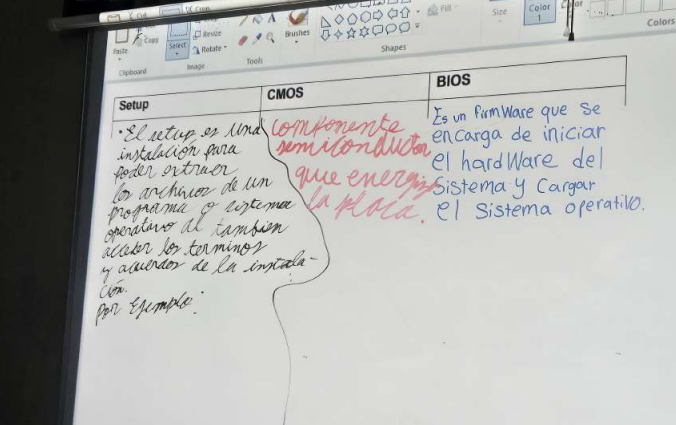 Cut
Crop
Paste
Copy
Select
Resize
Rotate
Brushes
Fill
Size
Color
1
Color
Clipboard
Image
Tools
Shapes
Colors
Setup
CMOS
BIOS
• El setup es una
instalación para
poder extraer
los archivos de un
programa o sistema
operativo al tambien
acceder los terminos
y acuerdos de la instala-
ción.
Por Ejemplo:
componente
semiconductor
que energiza
la placa.
Es un FirmWare que se
encarga de iniciar
el hardWare del
Sistema y Cargar
el Sistema operativo.